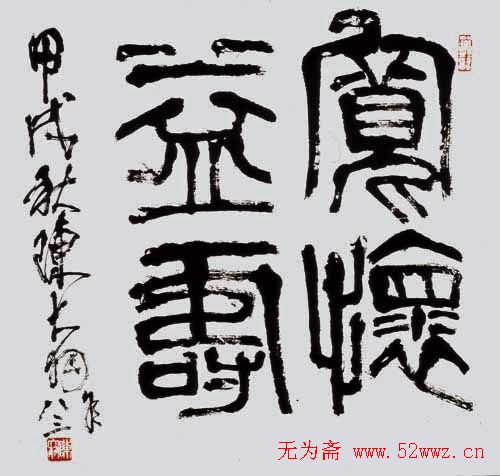 寬懷
益壽
甲戌秋陳大羽年
八三
无为斋 www.52wwz.cn